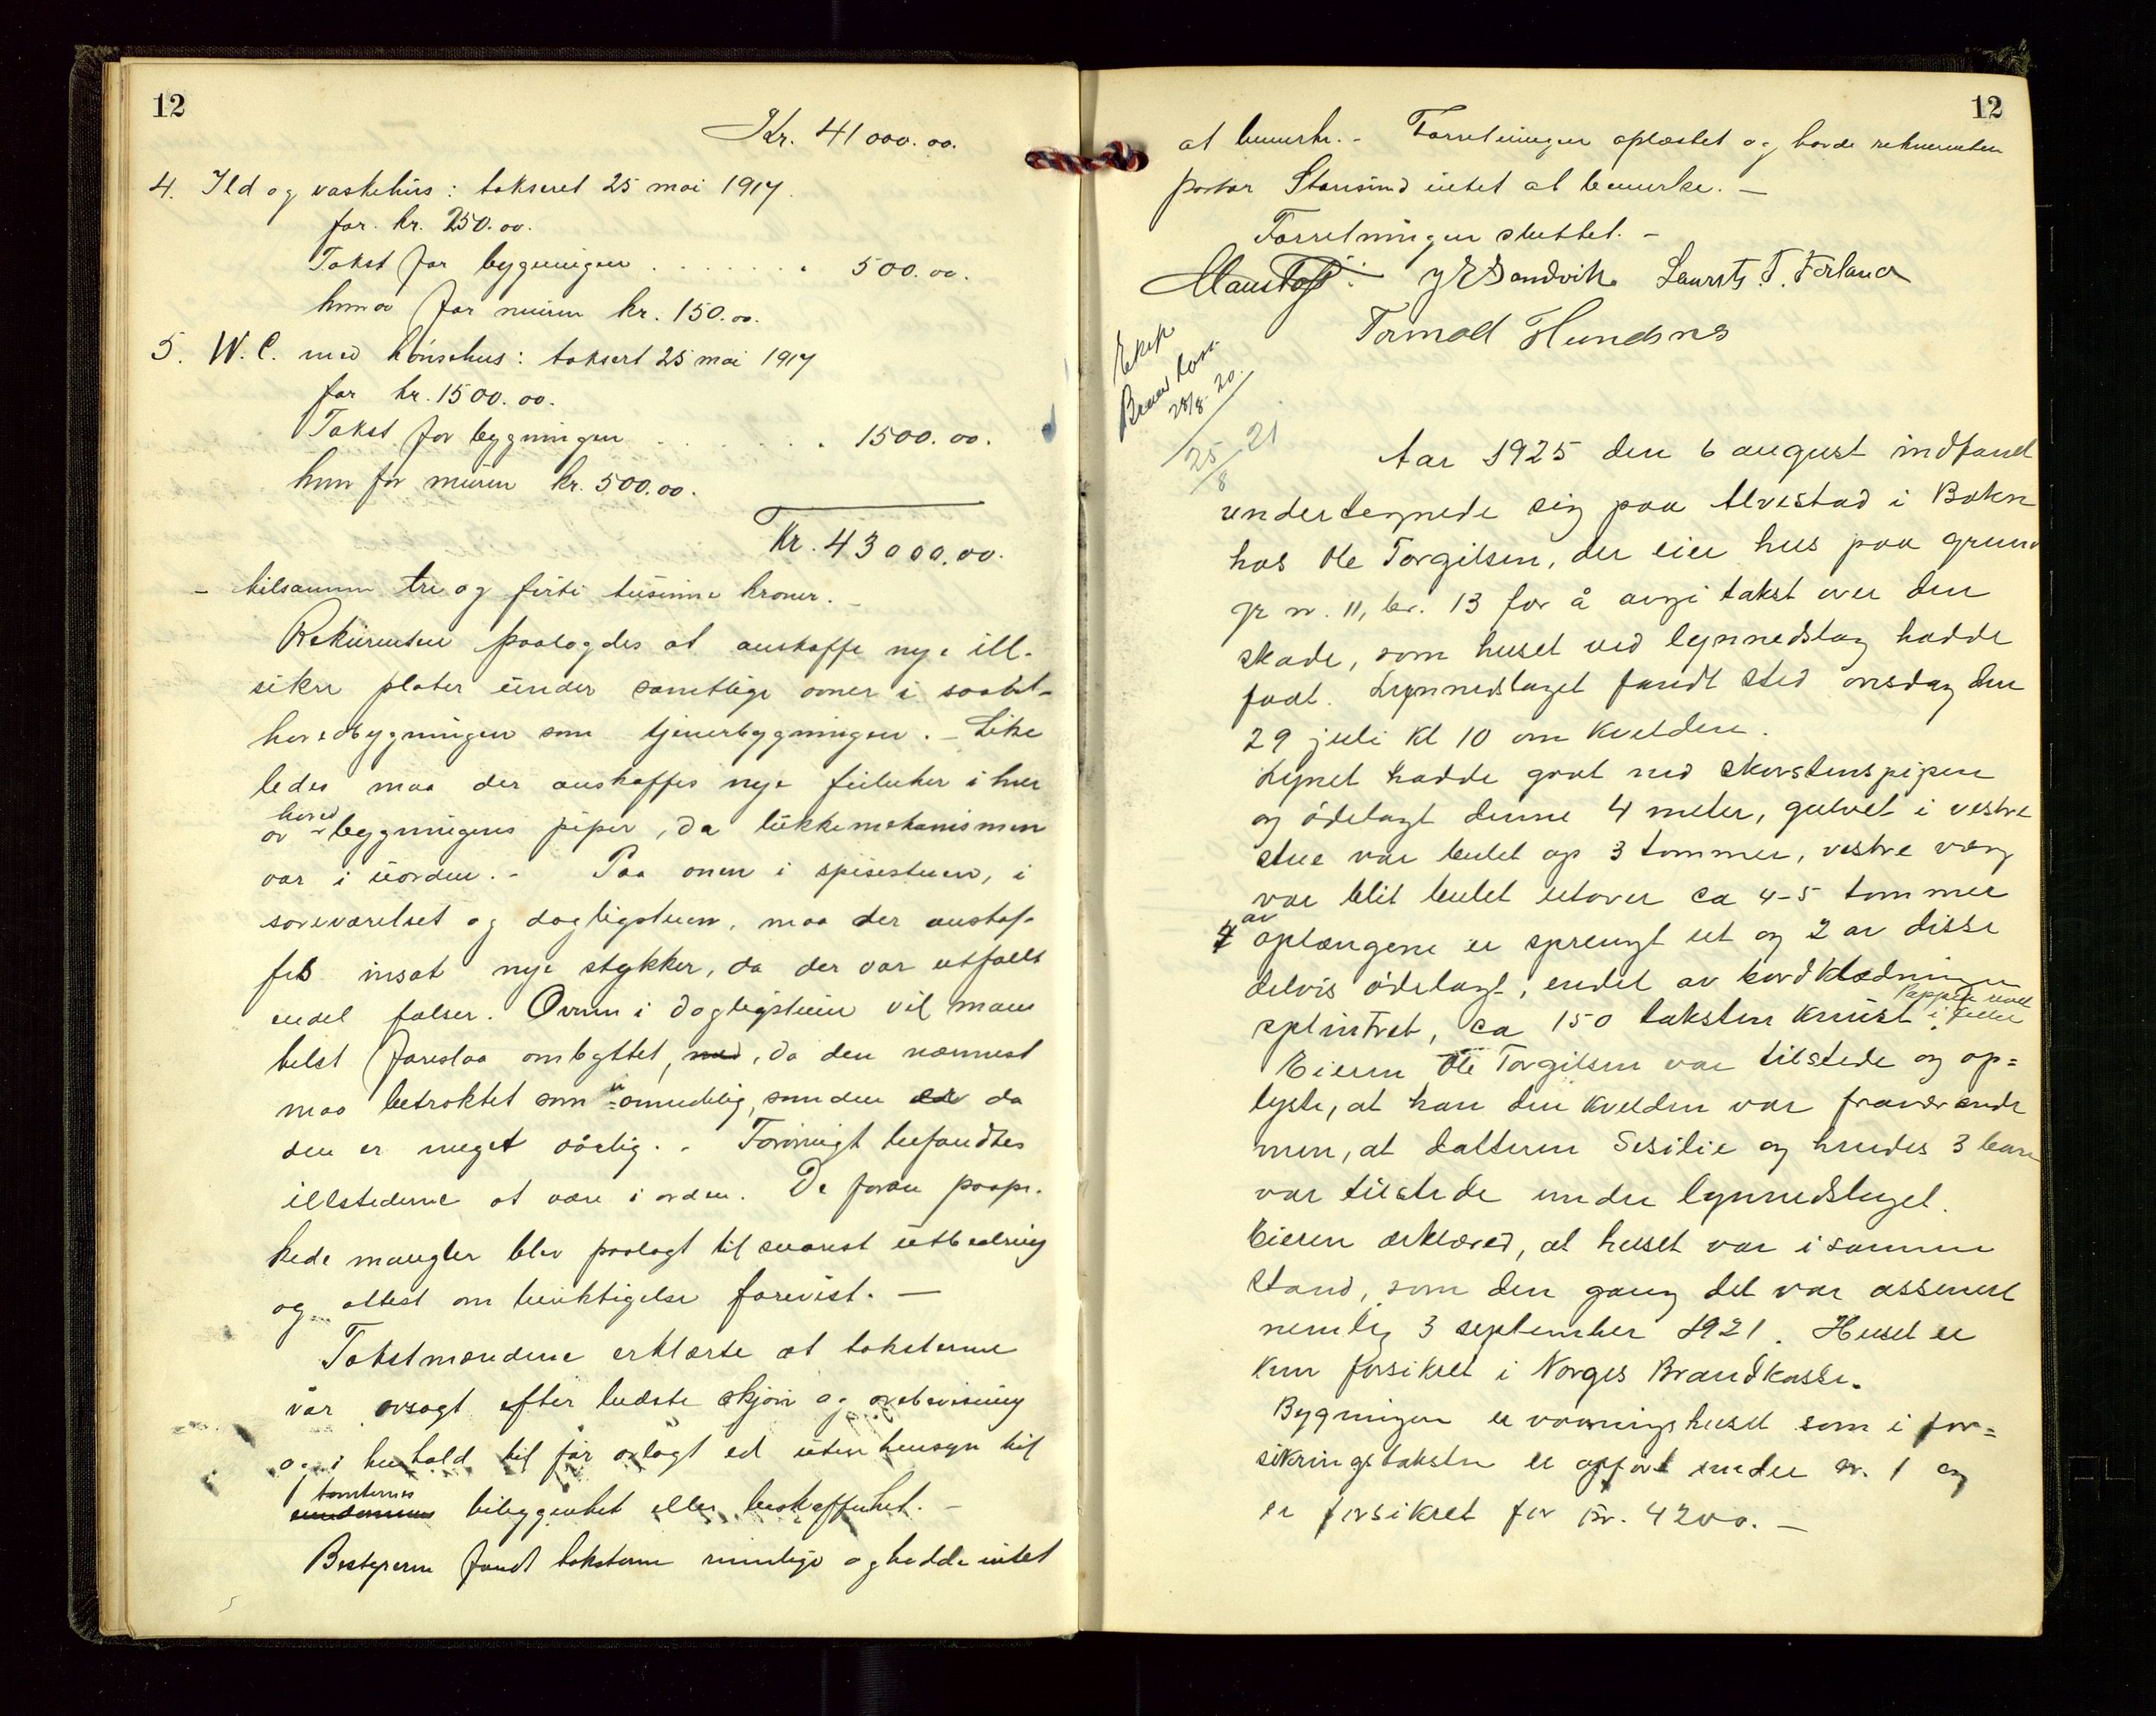 12
Kr. 41000.00.
4. Ild og vaskehus: taksert 25 mai 1917.
for kr. 250.00.
Takst for bygningen . . . . . . . 500.00.
hvorav for muren kr. 150.00.
5. W.C. med hönsehus: taksert 25 mai 1917
for kr. 1500.00.
Takst for bygningen . . . . . . . 1500.00.
hvorav for muren kr. 500.00.
Kr. 43000.00.
– tilsammen tre og førti tusinne kroner. –
Rekvirenten paalagdes at anskaffe nye ill-
sikre plater under samtlige ovner i saavel
hovedbygningen som tjenerbygningen. – Like
ledes maa der anskaffes nye feieluker i hver
av hovedbygningens piper, da lukkemekanismen
var i uorden. – Paa ovnen i spisestuen, i
soveværelset og dagligstuen, maa der anskaf-
fes insat nye stykker, da der var utfallt
endel falser. Ovnen i dagligstuen vil man
helst foreslaa ombyttet, da den nærmest
maa betraktet som u-anvendelig, da
den er meget daarlig. – Forøvrigt befandtes
illstederne at være i orden. De foran paape-
kede mangler blev paalagt til snarest utbedring
og attest om besiktigelse forevist. –
Takstmændene erklærte at taksterne
var avsagt efter bedste skjön og overbevisning
og i henhold til før avlagt ed uten hensyn til
tomternes beliggenhet eller beskaffenhet. –
Bestyreren fandt taksterne rimelige og hadde intet
12
at bemerke. – Forretningen oplæstet og havde rekvirenten
pastor Stansund intet at bemerke. –
Forretningen sluttet. –
J E Sandvik. Laurits T. Førland
Tormod Hundsnes
Eksp
Brand kass.
28/8-20.
25/8 21
Aar 1925 den 6 august indfandt
undertegnede sig paa Alvestad i Bokn
hos Ole Torgilsen, der eier hus paa grund
gr nr. 11, br. 13 for å avgi takst over den
skade, som huset ved lynnedslag hadde
faat. Lynnedslaget fandt sted onsdag den
29 juli kl 10 om kvelden.
Lynet hadde gaat ned skorstenspipen
og ödelagt denne 4 meter, gulvet i vestre
stue var bulet op 3 tommer, vestre væg
var blit bulet utover ca 4-5 tommer
4 av oplængene er sprengt ut og 2 av disse
delvis ödelagt, endel av bordklædningen
splintret, ca 150 taksten knust.
Eieren Ole Torgilsen var tilstede og op=
lyste, at han den kvelden var fraværende
men, at datteren Sesilie og hendes 3 barn
var tilstede under lynnedslaget.
Eieren erklæred, at huset var i samme
stand, som den gang det var assurert
nemlig 3 september 1921. Huset er
kun forsikret i Norges Brandkasse.
Bygningen er vaaningshuset som i for=
sikringstaksten er opført under nr. 1 og
er forsikret for kr. 4200. –